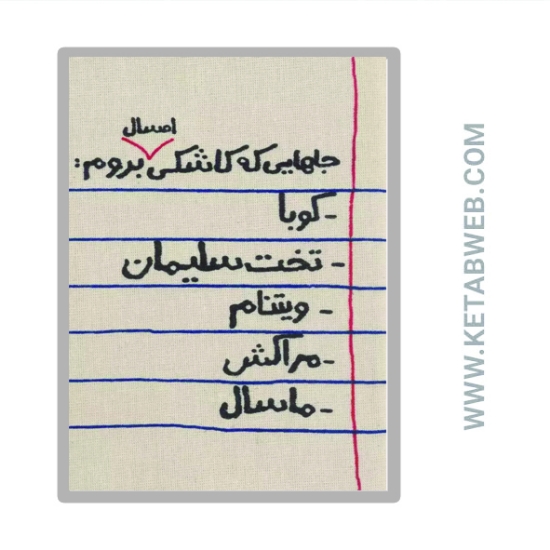 امسال
جاهایی که کاشکی بروم:
- کوبا
- تخت سلیمان
- ویتنام
- مراکش
- ماسال
WWW.KETABWEB.COM